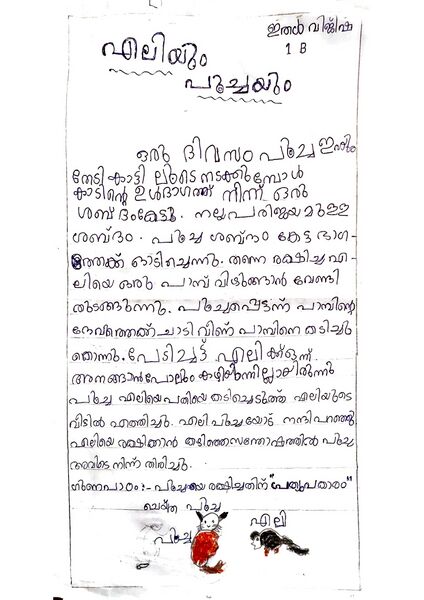 ഇതൾ വിജീഷ്
1 B
എലിയും
പൂച്ചയും
ഒരു ദിവസം പൂച്ച ഇര
തേടി കാട്ടിലൂടെ നടക്കുമ്പോൾ
കാടിന്റെ ഉൾഭാഗത്ത് നിന്ന് ഒരു
ശബ്ദംകേട്ടു. നല്ല പരിജയമുള്ള
ശബ്ദം. പൂച്ച ശബ്ദം കേട്ട ഭാഗ-
ത്തേക്ക് ഓടിച്ചെന്നു. തന്നെ രക്ഷിച്ച എ-
ലിയെ ഒരു പാമ്പ് വിഴുങ്ങാൻ വേണ്ടി
തുടങ്ങുന്നു. പൂച്ച പെട്ടന്ന് പാമ്പിന്റെ
ദേഹത്തേക്ക് ചാടി വീണ് പാമ്പിനെ കടിച്ചു
കൊന്നു. പേടിച്ചിട്ട് എലിക്ക് ഒന്ന്
അനങ്ങാൻപോലും കഴിയുന്നില്ലായിരുന്നു
പൂച്ച എലിയെ പതിയെ കടിച്ചെടുത്ത് എലിയുടെ
വീടിൽ എത്തിച്ചു. എലി പൂച്ചയോട് നന്ദി പറഞ്ഞു
എലിയെ രക്ഷിക്കാൻ കഴിഞ്ഞസന്തോഷത്തിൽ പൂച്ച
അവിടെ നിന്ന് തിരിച്ചു.
ഗുണപാഠം:- പൂച്ചയെ രക്ഷിച്ചതിന് "പ്രത്യുപകാരം"
ചെയ്ത പൂച്ച
പൂച്ച
എലി